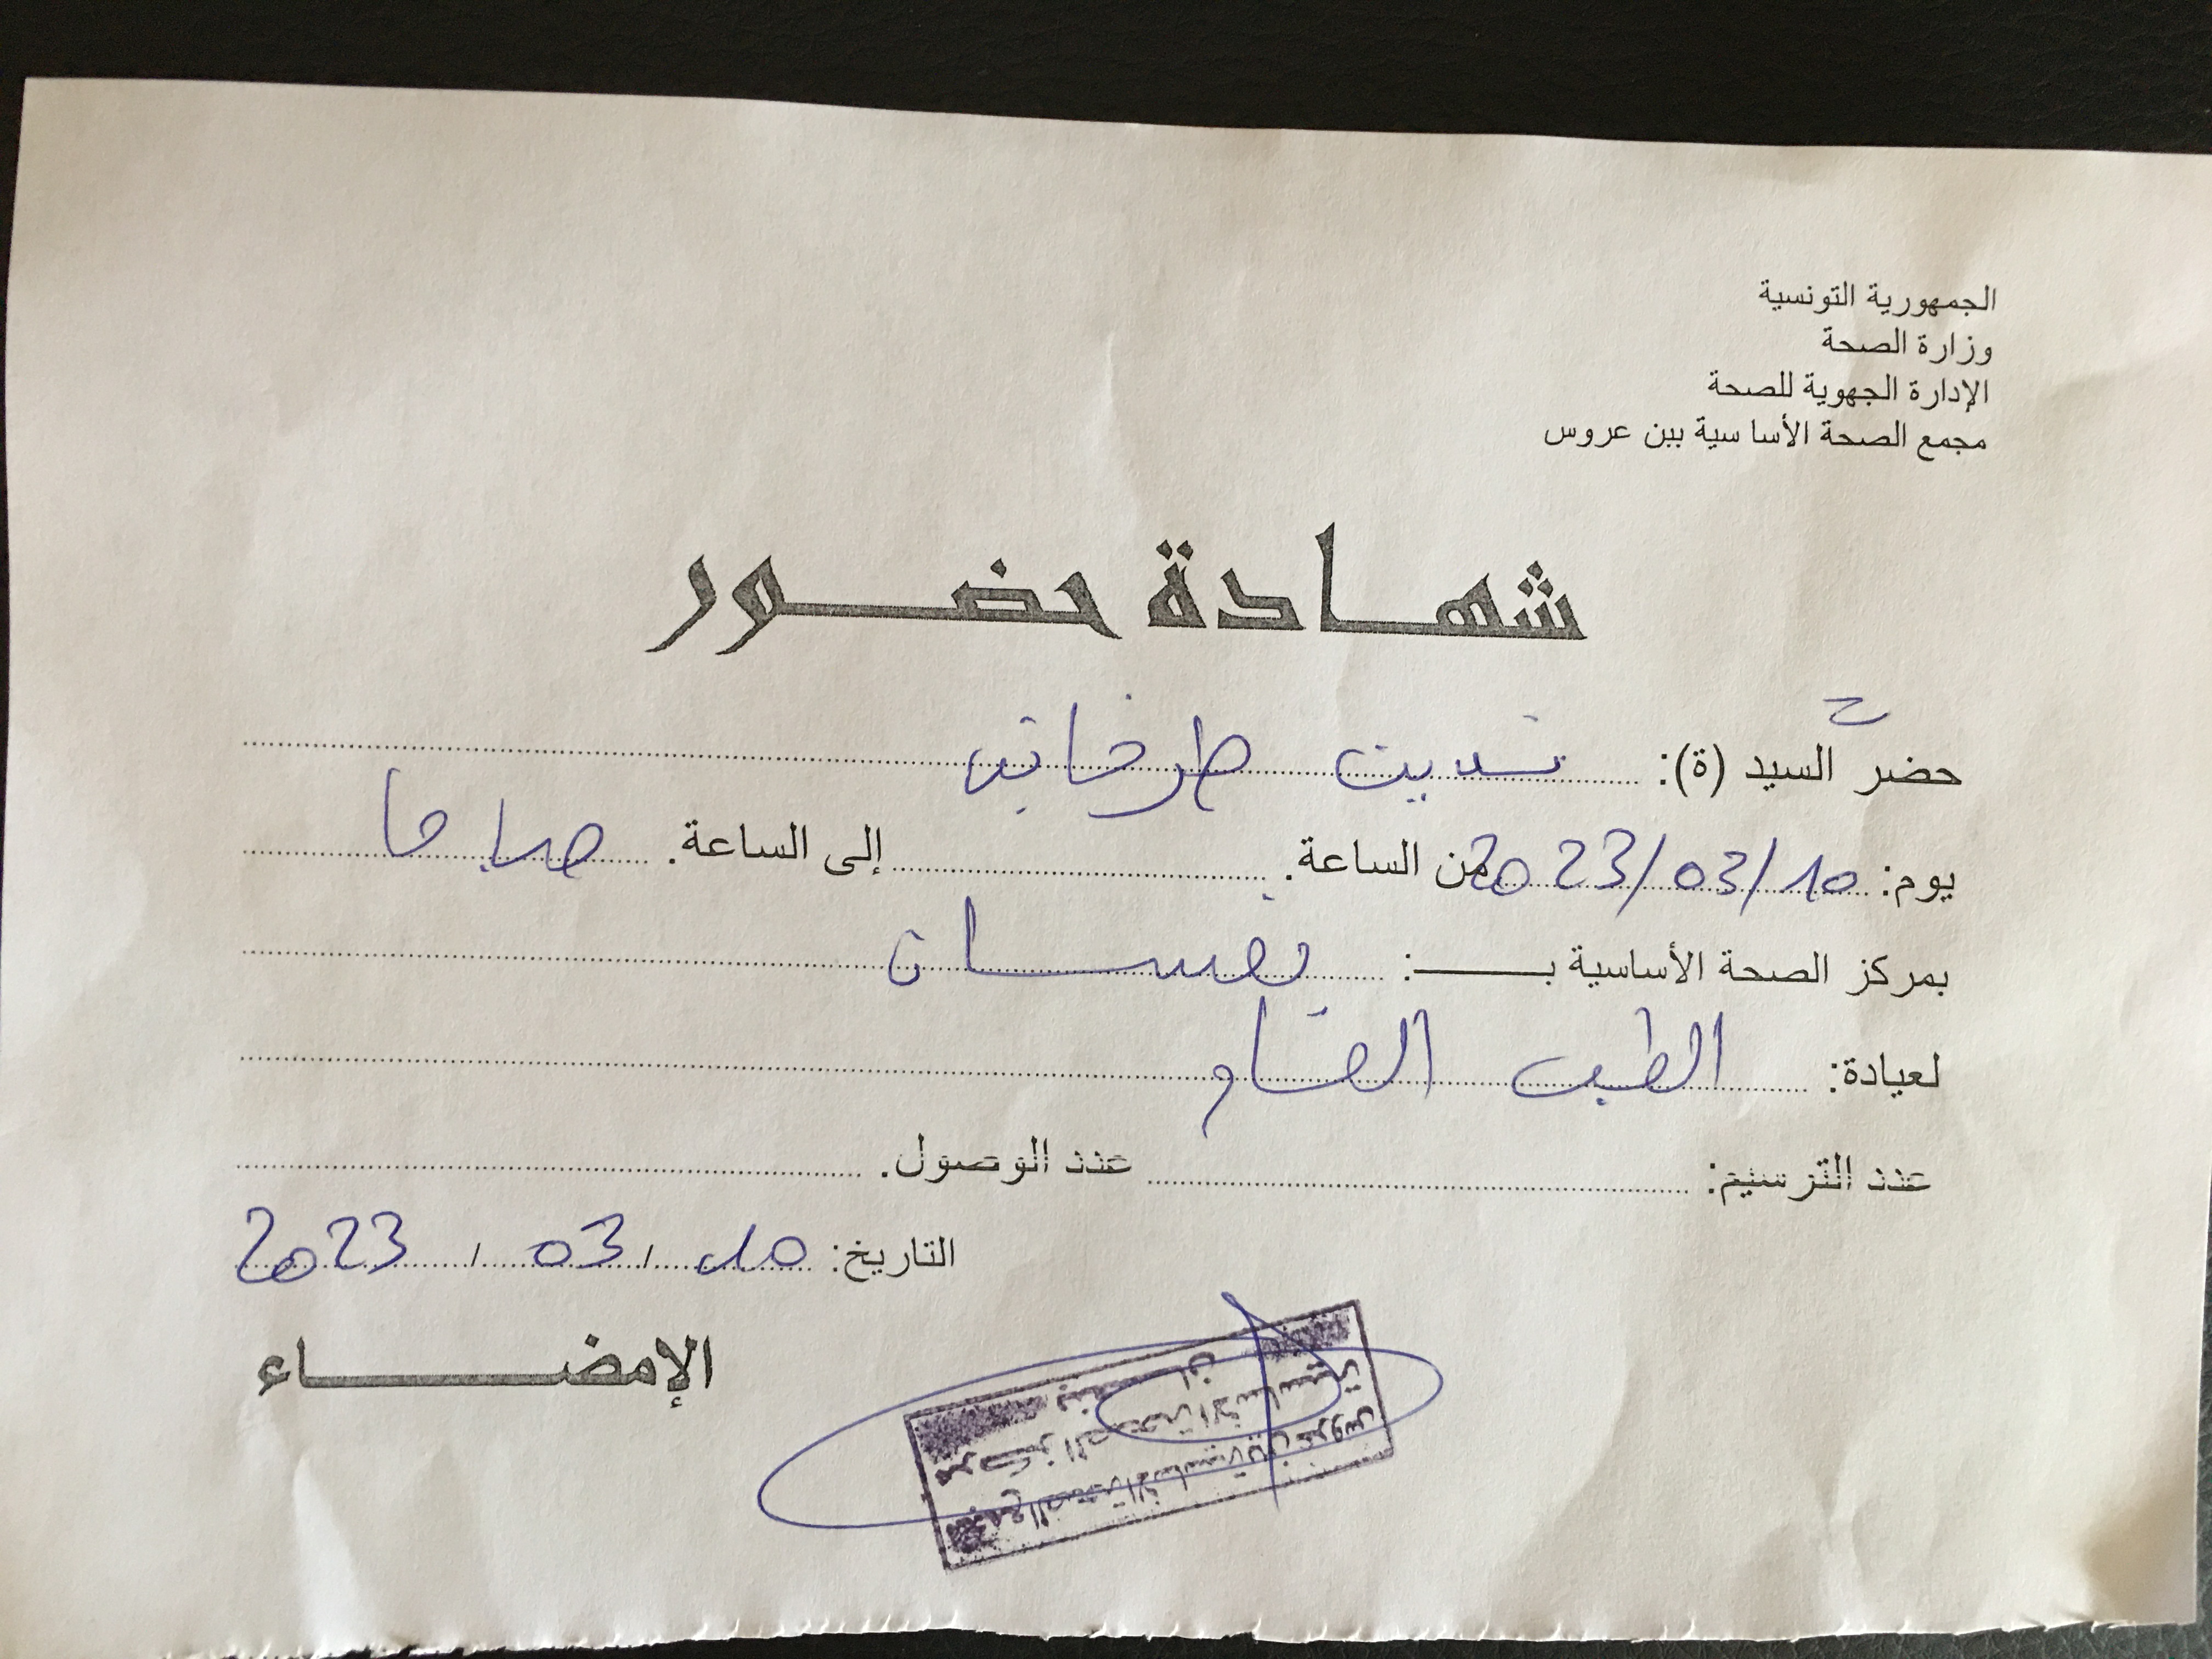 الجمهورية التونسية
وزارة الصحة
الإدارة الجهوية للصحة
مجمع الصحة الأساسية ببن عروس
شهادة حضور
حضر السيد (ة): نسرين طرخاني
يوم: 2023/03/10 من الساعة. إلى الساعة. صباحا
بمركز الصحة الأساسية بـ: نعسان
لعيادة: الطب العام
عدد الترسيم: عدد الوصول.
التاريخ: 10 / 03 / 2023
الإمضاء
مركز الصحة الأساسية بنعسان
مجمع الصحة الأساسية ببن عروس